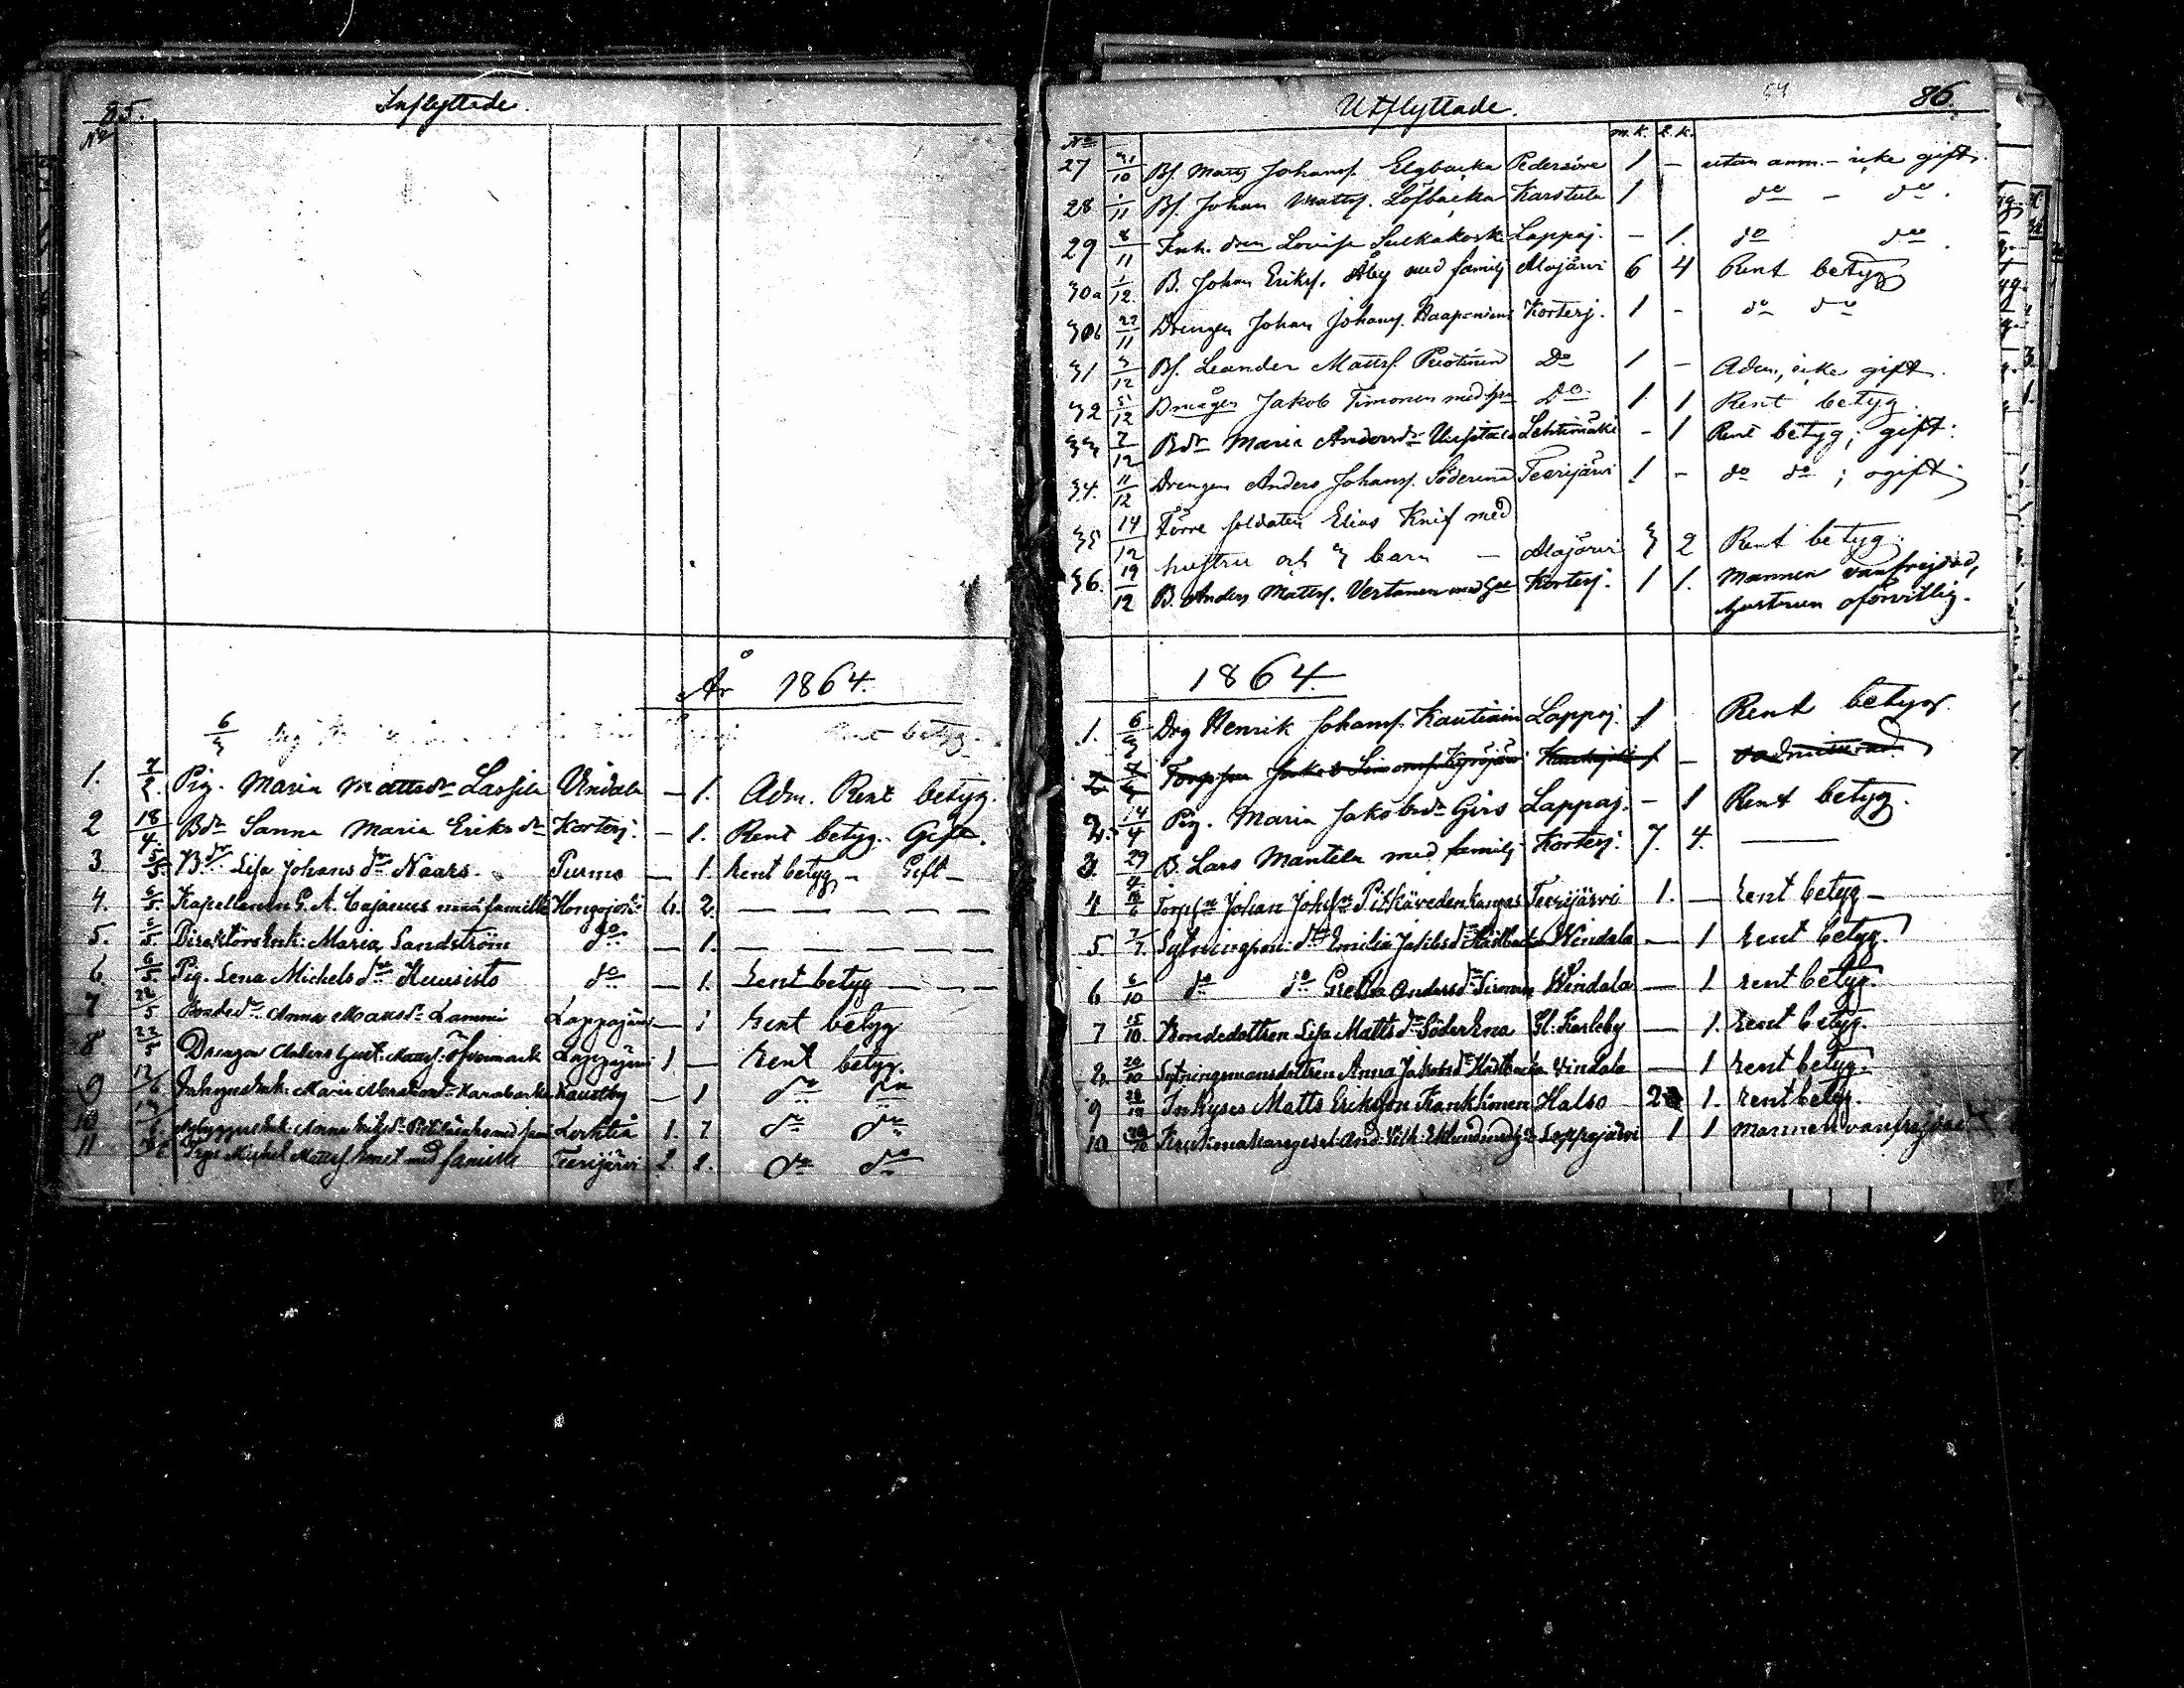 85. Inflyttade.
No
År 1864.
6/3 Rent betyg.
1. 7/2. Pig. Maria Mattsdr Lassila Vindala — 1. Adm. Rent betyg.
2 18/4. Bdr Sanna Maria Eriksdr Kortesj. — 1. Rent betyg. Gift.
3. 5/5. Bdr Lisa Johansdr Naars Purmo — 1. Rent betyg — Gift —
4. 6/5. Kapellanen G. A. Cajanus med familie 4. 2. — — — — —
5. 6/5. Maria Sandström do — 1. — — — — —
6. 6/5. Pig. Lena Michelsdr Huusisto do — 1. Rent betyg — — —
7 22/5 Bondedr Anna Mansdr Lammi Lappajärvi — 1 Rent betyg
8 23/5 Drengen Anders Gust. Mattss. Lappajärvi 1. — Rent betyg.
9 12/6 Maria Kaustby — 1 do do
10 Anna med son Lochteå 1. 1 do do
11 Michel Mattss. med familie Terijärvi 2. 2. do do
Utflyttade. 86.
No m.k. q.k.
27 31/10 Bs. Matts Johanss. Elgbacka Pedersöre 1 — utan anm. — icke gift.
28 1/11 Bs. Johan Mattss. Löfbacka Karstula 1 do — do.
29 8/11 Inh. dren Lovisa Sulkakoski Lappaj. — 1. do do.
30a 1/12. B. Johan Erikss. Åby med familj Alajärvi 6 4 Rent betyg
30b 22/11 Drengen Johan Johanss. Haapaniemi Kortesj. 1 — do do
31 3/12 Bs. Leander Mattss. Puotinen Do 1 — Adm., icke gift.
32 5/12 Jakob Timonen med hu Do 1 1 Rent betyg
33 7/12 Bdr Maria Andersdr Uusitalo Lehtimäki — 1 Rent betyg; gift.
34. 11/12 Drengen Anders Johanss. Söderena Teerijärvi 1 — do do; ogift.
35 14/12 Förre soldaten Elias Knif med
hustru och 3 barn — Alajärvi 3 2 Rent betyg.
36. 19/12 B. Anders Mattss. Vertanen med hu Kortesj. 1 1. Mannen vanfrejdad,
hustrun oförvitlig.
1864.
1. 6/3 Drg Henrik Johanss. Kautiain Lappaj. 1 Rent betyg.
2 7/4 Jakob Simonss. Kyröjärvi 1 — oadmitterad
14/4 Pig. Maria Jakobsdr Girs Lappaj. — 1 Rent betyg.
3. 29/4 B. Lars Mantila med familj Kortesj. 7. 4. —
4 Torpsn Johan Johssn Pitkävedenkangas Terijärvi 1. — Rent betyg —
5 7/7 Emilia Jakobsdr Windala — 1 Rent betyg.
6 6/10 do do Greta Andersdr Windala — 1 rent betyg.
7 15/10 Bondedottren Lisa Mattsdr Söderena Gl. Karleby — 1. Rent betyg.
8. 20/10 Sytningsmansdottren Anna Jakobsdr Vindala — 1 rent betyg.
9 Inhyses Matts Eriksson Kankkonen Halso 2 1. Rent betyg.
10 And. Wilh. Eklund med hu Lappajärvi 1 1 Mannen vanfrejdad